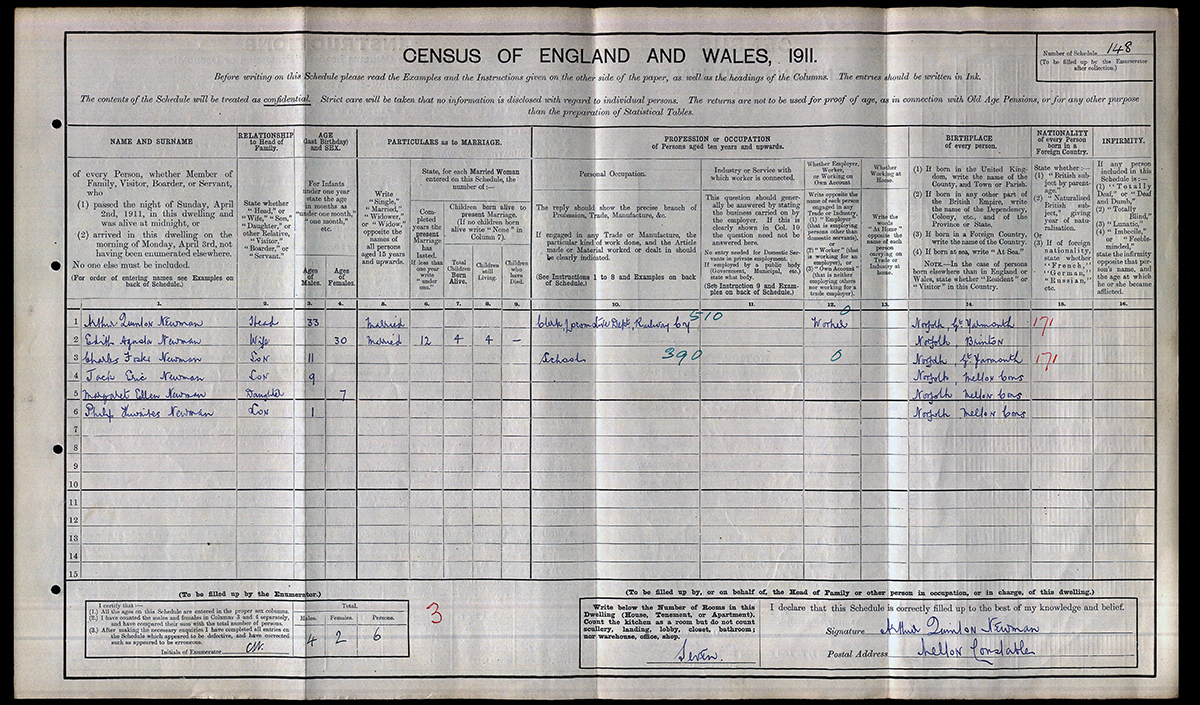 CENSUS OF ENGLAND AND WALES, 1911.
Number of Schedule 148
(To be filled up by the Enumerator
after collection.)
Before writing on this Schedule please read the Examples and the Instructions given on the other side of the paper, as well as the headings of the Columns. The entries should be written in Ink.
The contents of the Schedule will be treated as confidential. Strict care will be taken that no information is disclosed with regard to individual persons. The returns are not to be used for proof of age, as in connection with Old Age Pensions, or for any other purpose
than the preparation of Statistical Tables.
NAME AND SURNAME
of every Person, whether Member of
Family, Visitor, Boarder, or Servant,
who
(1) passed the night of Sunday, April
2nd, 1911, in this dwelling and
was alive at midnight, or
(2) arrived in this dwelling on the
morning of Monday, April 3rd, not
having been enumerated elsewhere.
No one else must be included.
(For order of entering names see Examples on
back of Schedule.)
RELATIONSHIP
to Head of
Family.
State whether
"Head," or
"Wife," "Son,"
"Daughter," or
other Relative,
"Visitor,"
"Boarder," or
"Servant."
AGE
(last Birthday)
and SEX.
For Infants
under one year
state the age
in months as
"under one month,"
"one month,"
etc.
Ages
of
Males.
Ages
of
Females.
PARTICULARS as to MARRIAGE.
Write
"Single,"
"Married,"
"Widower,"
or "Widow,"
opposite the
names of
all persons
aged 15 years
and upwards.
State, for each Married Woman
entered on this Schedule, the
number of:—
Completed
years the
present
Marriage
has
lasted.
If less than
one year
write
"under
one."
Children born alive to
present Marriage.
(If no children born
alive write "None" in
Column 7).
Total
Children
Born
Alive.
Children
still
Living.
Children
who
have
Died.
PROFESSION or OCCUPATION
of Persons aged ten years and upwards.
Personal Occupation.
The reply should show the precise branch of
Profession, Trade, Manufacture, &c.
If engaged in any Trade or Manufacture, the
particular kind of work done, and the Article
made or Material worked or dealt in should
be clearly indicated.
(See Instructions 1 to 8 and Examples on back
of Schedule.)
Industry or Service with
which worker is connected.
This question should generally
be answered by stating
the business carried on by
the employer. If this is
clearly shown in Col. 10
the question need not be
answered here.
No entry needed for Domestic Servants
in private employment.
If employed by a public body
(Government, Municipal, etc.)
state what body.
(See Instruction 9 and Examples
on back of Schedule.)
Whether Employer,
Worker,
or Working on
Own Account
Write opposite the
name of each person
engaged in any
Trade or Industry,
(1) "Employer"
(that is employing
persons other than
domestic servants),
or
(2) "Worker" (that
is working for an
employer), or
(3) "Own Account"
(that is neither
employing others
nor working for a
trade employer).
Whether
Working at
Home.
Write the
words
"At Home"
opposite the
name of each
person
carrying on
Trade or
Industry at
home.
BIRTHPLACE
of every person.
(1) If born in the United Kingdom,
write the name of the
County, and Town or Parish.
(2) If born in any other part of
the British Empire, write
the name of the Dependency,
Colony, etc., and of the
Province or State.
(3) If born in a Foreign Country,
write the name of the Country.
(4) If born at sea, write "At Sea."
NOTE.—In the case of persons
born elsewhere than in England or
Wales, state whether "Resident" or
"Visitor" in this Country.
NATIONALITY
of every Person
born in a
Foreign Country.
State whether:—
(1) "British subject
by parentage."
(2) "Naturalised
British subject,"
giving
year of naturalisation.
Or
(3) If of foreign
nationality,
state whether
"French,"
"German,"
"Russian,"
etc.
INFIRMITY.
If any person
included in this
Schedule is:—
(1) "Totally
Deaf," or "Deaf
and Dumb,"
(2) "Totally
Blind,"
(3) "Lunatic,"
(4) "Imbecile,"
or "Feeble-minded,"
state the infirmity
opposite that person's
name, and
the age at which
he or she became
afflicted.
1. 2. 3. 4. 5. 6. 7. 8. 9. 10. 11. 12. 13. 14. 15. 16.
1 Arthur Quinton Newman Head 33 Married Clerk, Locomotive Dept, Railway Coy 510 Worker 0 Norfolk, Gt. Yarmouth 171
2 Edith Agusta Newman Wife 30 Married 12 4 4 — Norfolk Brinton
3 Charles Newman Son 11 School 390 0 Norfolk Gt Yarmouth 171
4 Jack Eric Newman Son 9 Norfolk Melton Cons
5 Margaret Ellen Newman Daughter 7 Norfolk Melton Cons
6 Philip Newman Son 1 Norfolk Melton Cons
7
8
9
10
11
12
13
14
15
(To be filled up by the Enumerator.)
I certify that:—
(1.) All the ages on this Schedule are entered in the proper sex columns.
(2.) I have counted the males and females in Columns 3 and 4 separately,
and have compared their sum with the total number of persons.
(3.) After making the necessary enquiries I have completed all entries on
the Schedule which appeared to be defective, and have corrected
such as appeared to be erroneous.
Initials of Enumerator
Total.
Males. Females. Persons.
4 2 6
3
(To be filled up by, or on behalf of, the Head of Family or other person in occupation, or in charge, of this dwelling.)
Write below the Number of Rooms in this
Dwelling (House, Tenement, or Apartment).
Count the kitchen as a room but do not count
scullery, landing, lobby, closet, bathroom;
nor warehouse, office, shop.
Seven.
I declare that this Schedule is correctly filled up to the best of my knowledge and belief.
Signature Arthur Quinton Newman
Postal Address Melton Constable